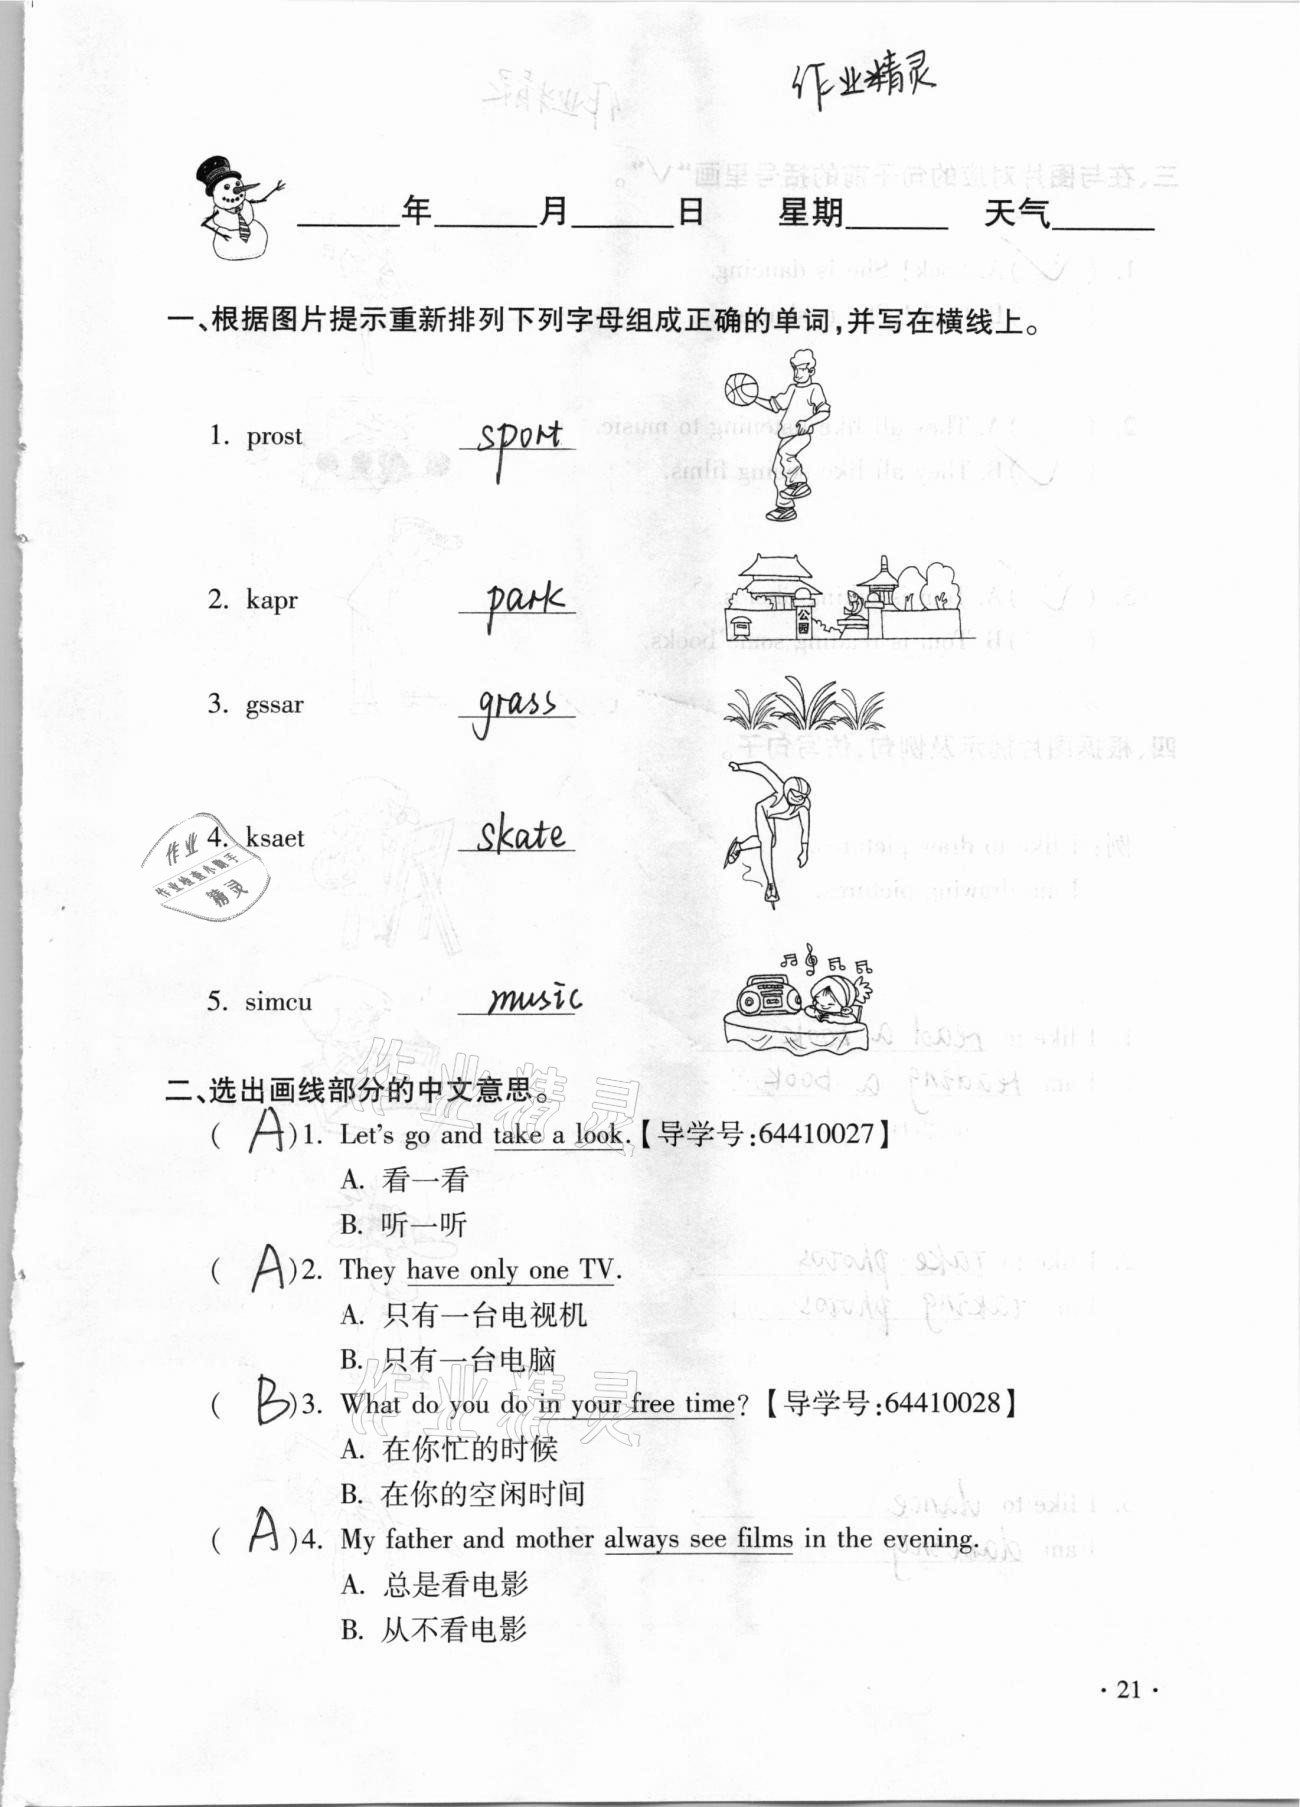 作业精灵
____年____月____日 星期____ 天气____
一、根据图片提示重新排列下列字母组成正确的单词,并写在横线上。
1. prost sport
2. kapr park
公园
3. gssar grass
4. ksaet skate
作业
作业检查小助手
精灵
5. simcu music
二、选出画线部分的中文意思。
( A )1. Let's go and take a look.【导学号:64410027】
A. 看一看
B. 听一听
( A )2. They have only one TV.
A. 只有一台电视机
B. 只有一台电脑
( B )3. What do you do in your free time?【导学号:64410028】
A. 在你忙的时候
B. 在你的空闲时间
( A )4. My father and mother always see films in the evening.
A. 总是看电影
B. 从不看电影
作业精灵
作业精灵
· 21 ·